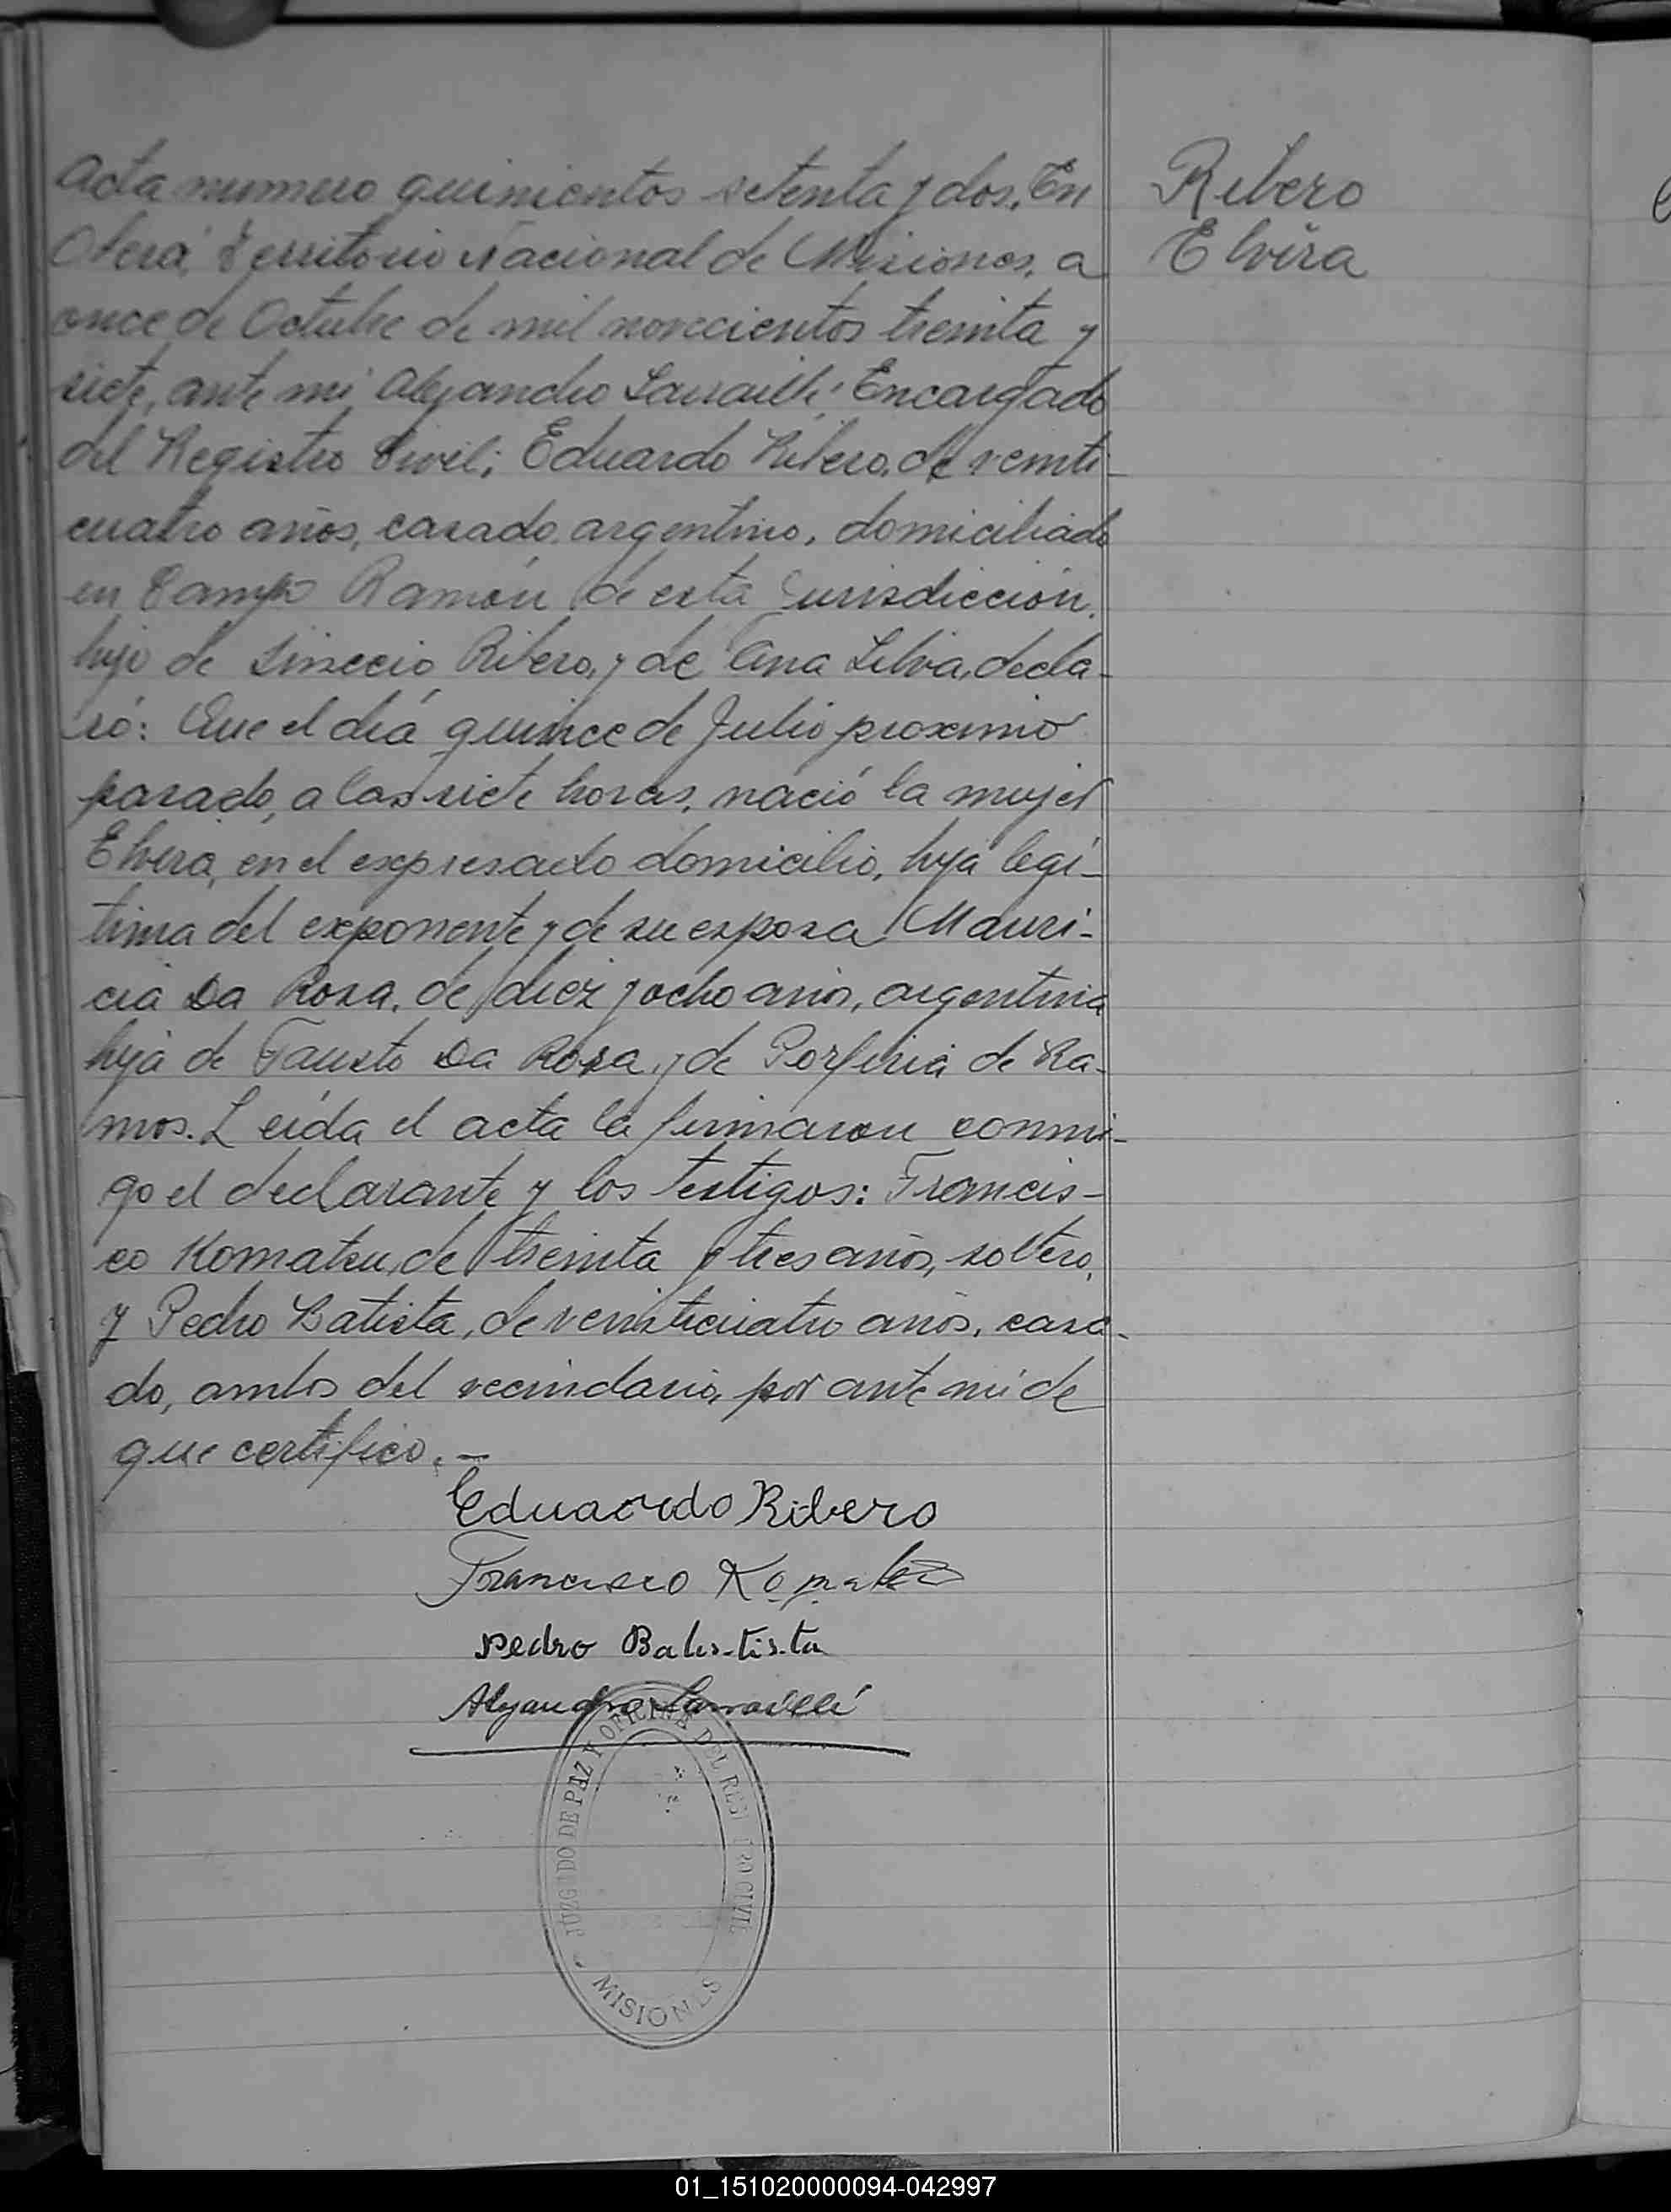 Acta numero quinientos setenta y dos. En
Oberá, Territorio Nacional de Misiones, a
once de Octubre de mil novecientos treinta y
siete, ante mi Alejandro Larraillé, Encargado
del Registro Civil; Eduardo Ribero, de veinti-
cuatro años, casado, argentino, domiciliado
en Campo Ramón de esta Jurisdicción,
hijo de Ribero, y de Ana Silva, decla-
ró: Que el día quince de Julio proximo
pasado, a las siete horas, nació la mujer
Elvira, en el expresado domicilio, hija legi-
tima del exponente y de su esposa Mauri-
cia Da Rosa, de diez y ocho años, argentina
hija de Fausto Da Rosa, y de Porfiria de Ra-
mos. Leída el acta la firmaron conmi-
go el declarante y los testigos: Francis-
co Komatsu, de treinta y tres años, soltero,
y Pedro Batista, de veinticuatro años, casa-
do, ambos del vecindario, por ante mi de
que certifico. —
Ribero
Elvira
Eduardo Ribero
Francisco
Pedro
Alejandro Larraillé
JUZGADO DE PAZ Y OFICINA DEL REGISTRO CIVIL
MISIONES
01_151020000094-042997